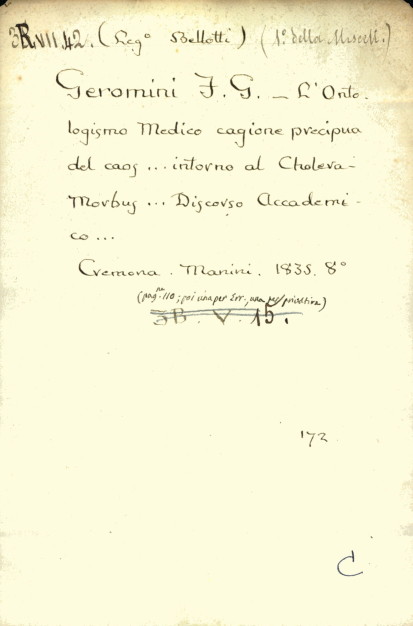 3R.VII.42. (Leg° Bellotti) (1° della Miscell.)
Geromini F. G. — L'Onto-
logismo Medico cagione precipua
del caos ... intorno al Cholera-
Morbus ... Discorso Accademi-
co ...
Cremona. Manini. 1835. 8°
(pag.ne 110; poi una per Err., una
3B. V. 15.
172
C